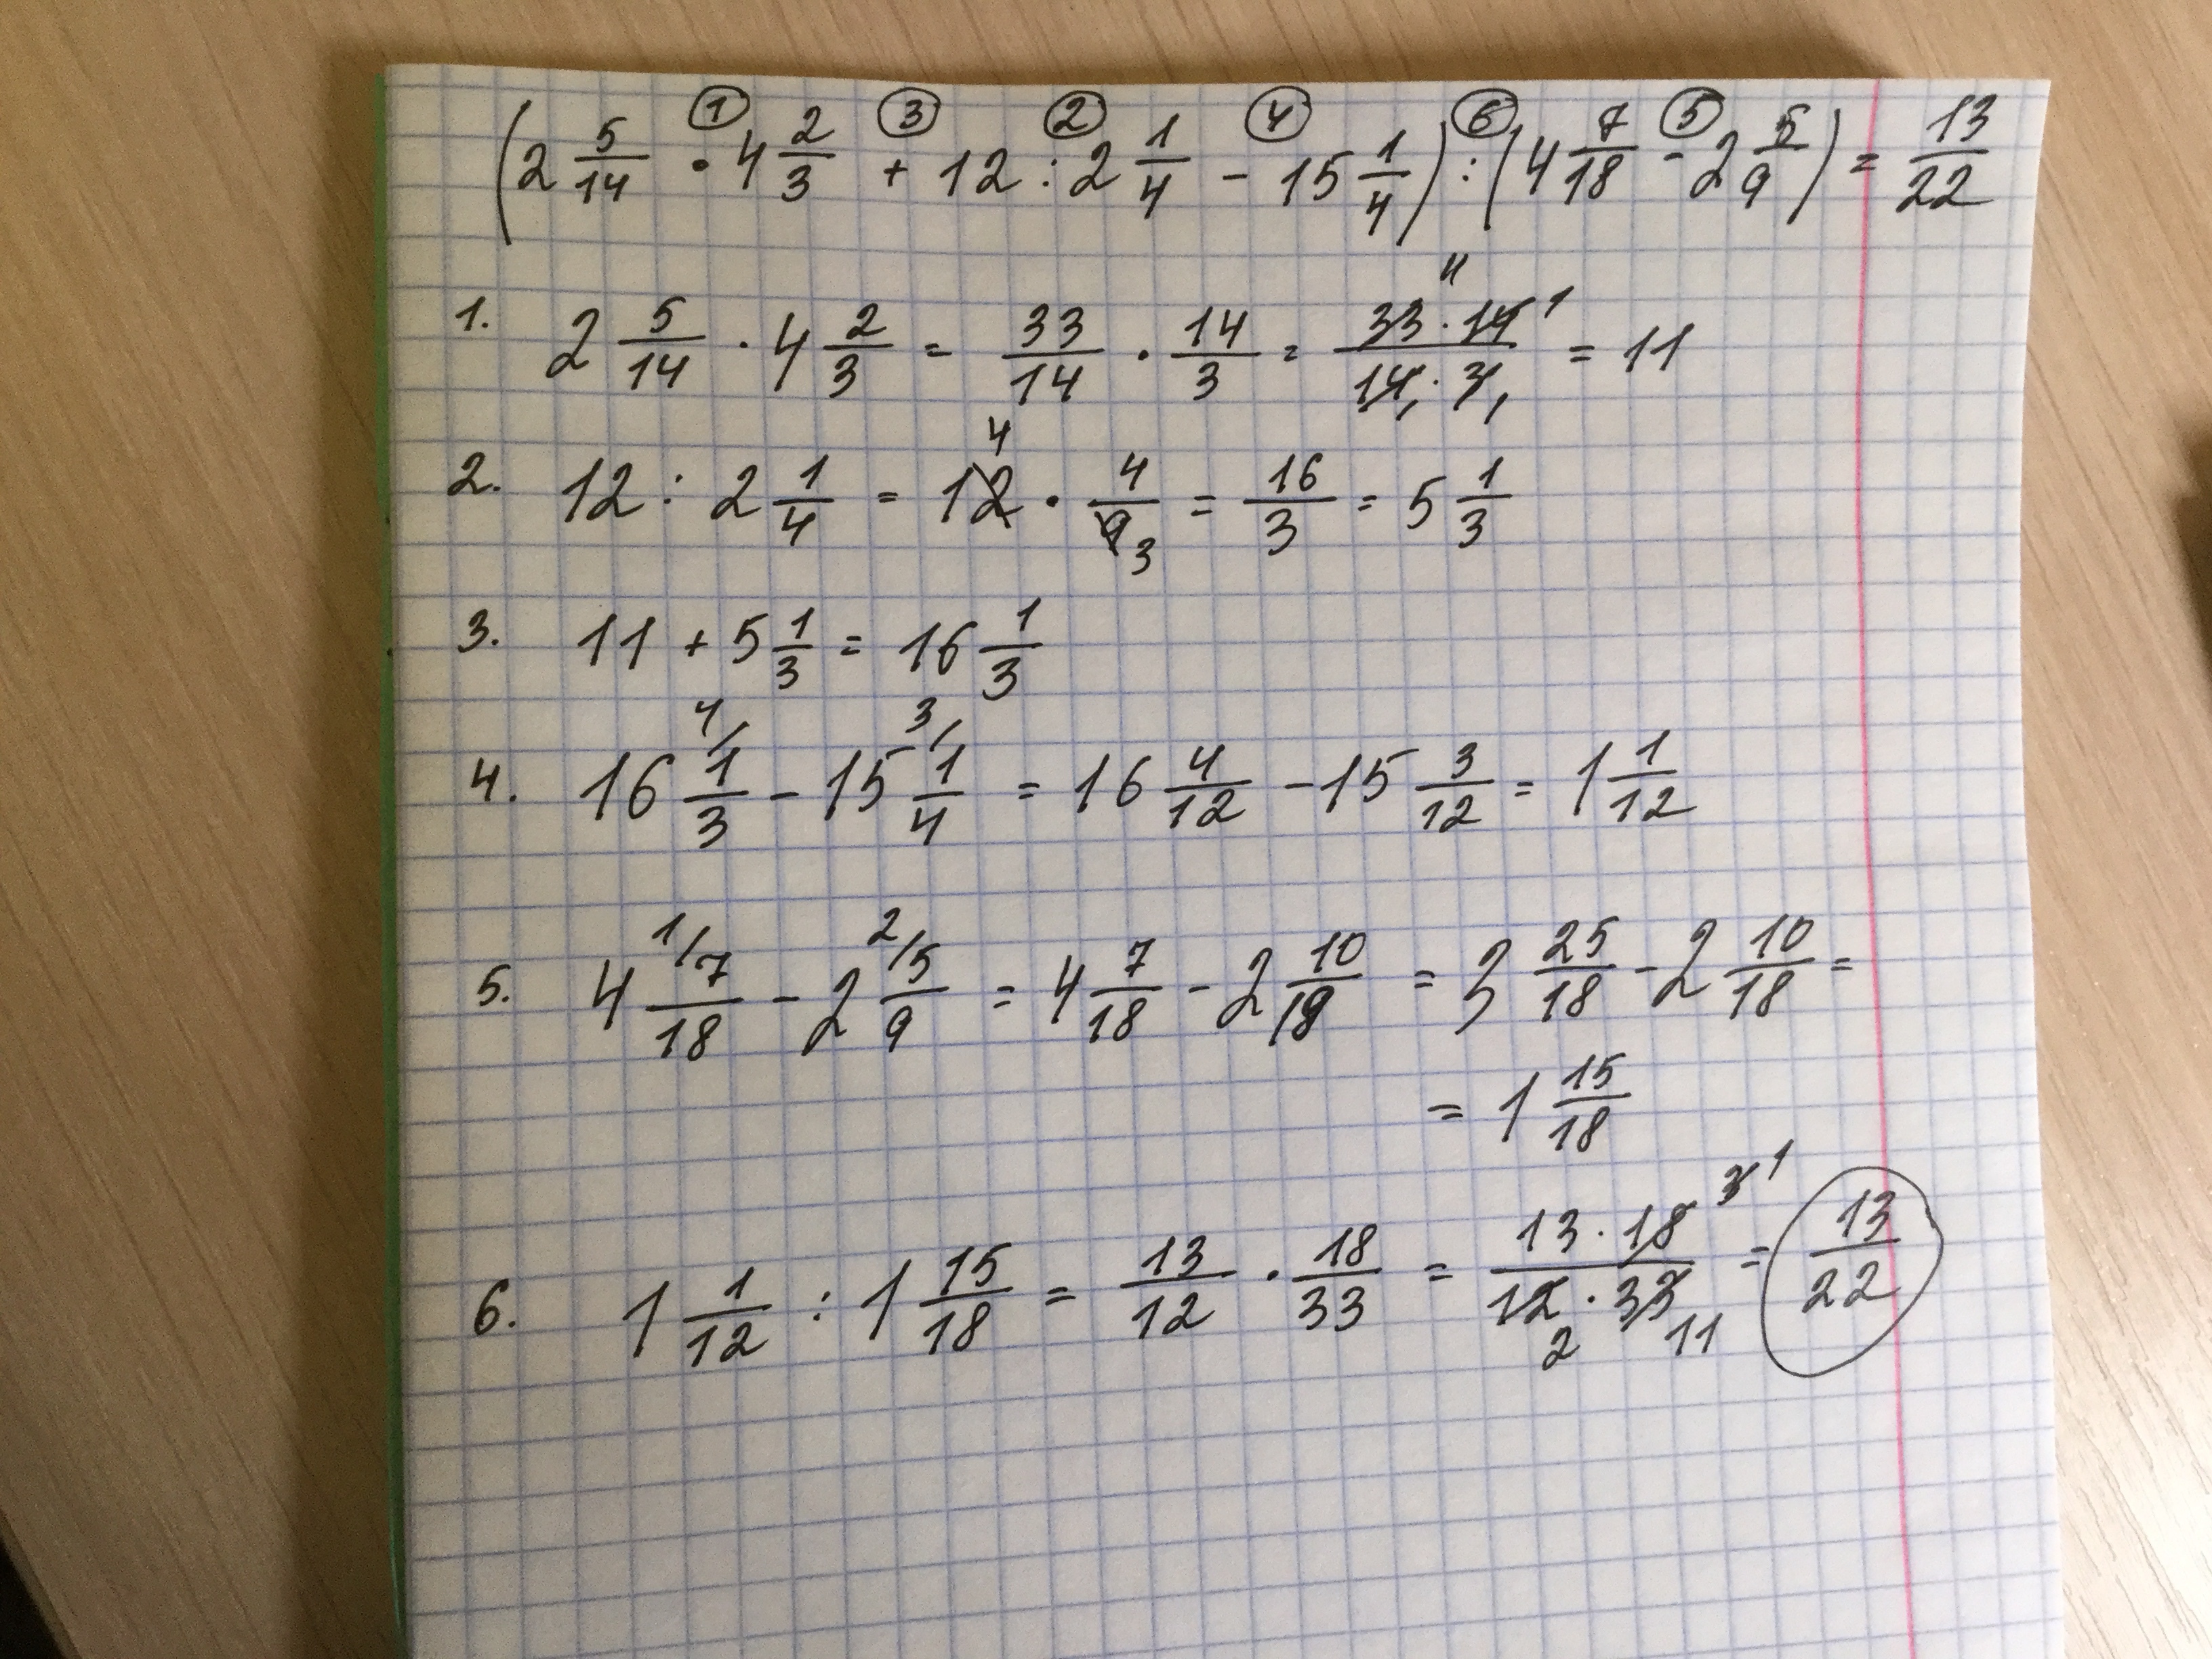 ① ③ ② ④ ⑥ ⑤
(2 5/14 · 4 2/3 + 12 : 2 1/4 - 15 1/4) : (4 7/18 - 2 5/9) = 13/22
1. 2 5/14 · 4 2/3 = 33/14 · 14/3 = 33 · 14/14 · 3 = 11
2. 12 : 2 1/4 = 12 · 4/9 = 16/3 = 5 1/3
3. 11 + 5 1/3 = 16 1/3
4. 16 1/3 - 15 1/4 = 16 4/12 - 15 3/12 = 1 1/12
5. 4 7/18 - 2 5/9 = 4 7/18 - 2 10/18 = 3 25/18 - 2 10/18 =
= 1 15/18
6. 1 1/12 : 1 15/18 = 13/12 · 18/33 = 13 · 18/12 · 33 = 13/22